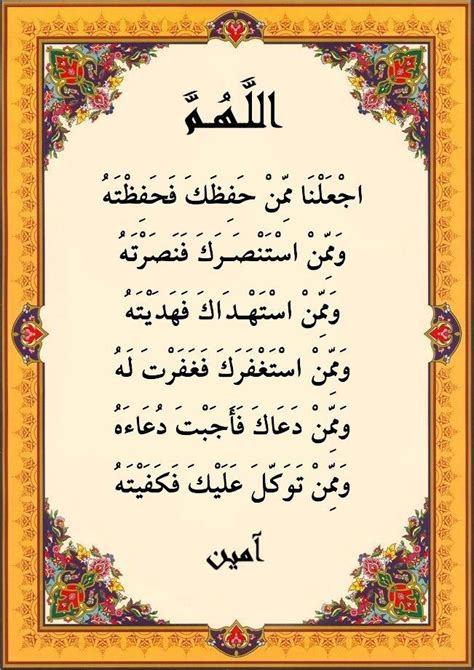 اللَّهُمَّ
اجْعَلْنَا مِمَّنْ حَفِظَكَ فَحَفِظْتَهُ
وَمِمَّنْ اسْتَنْصَرَكَ فَنَصَرْتَهُ
وَمِمَّنْ اسْتَهْدَاكَ فَهَدَيْتَهُ
وَمِمَّنْ اسْتَغْفَرَكَ فَغَفَرْتَ لَهُ
وَمِمَّنْ دَعَاكَ فَأَجَبْتَ دُعَاءَهُ
وَمِمَّنْ تَوَكّلَ عَلَيْكَ فَكَفَيْتَهُ
آمين